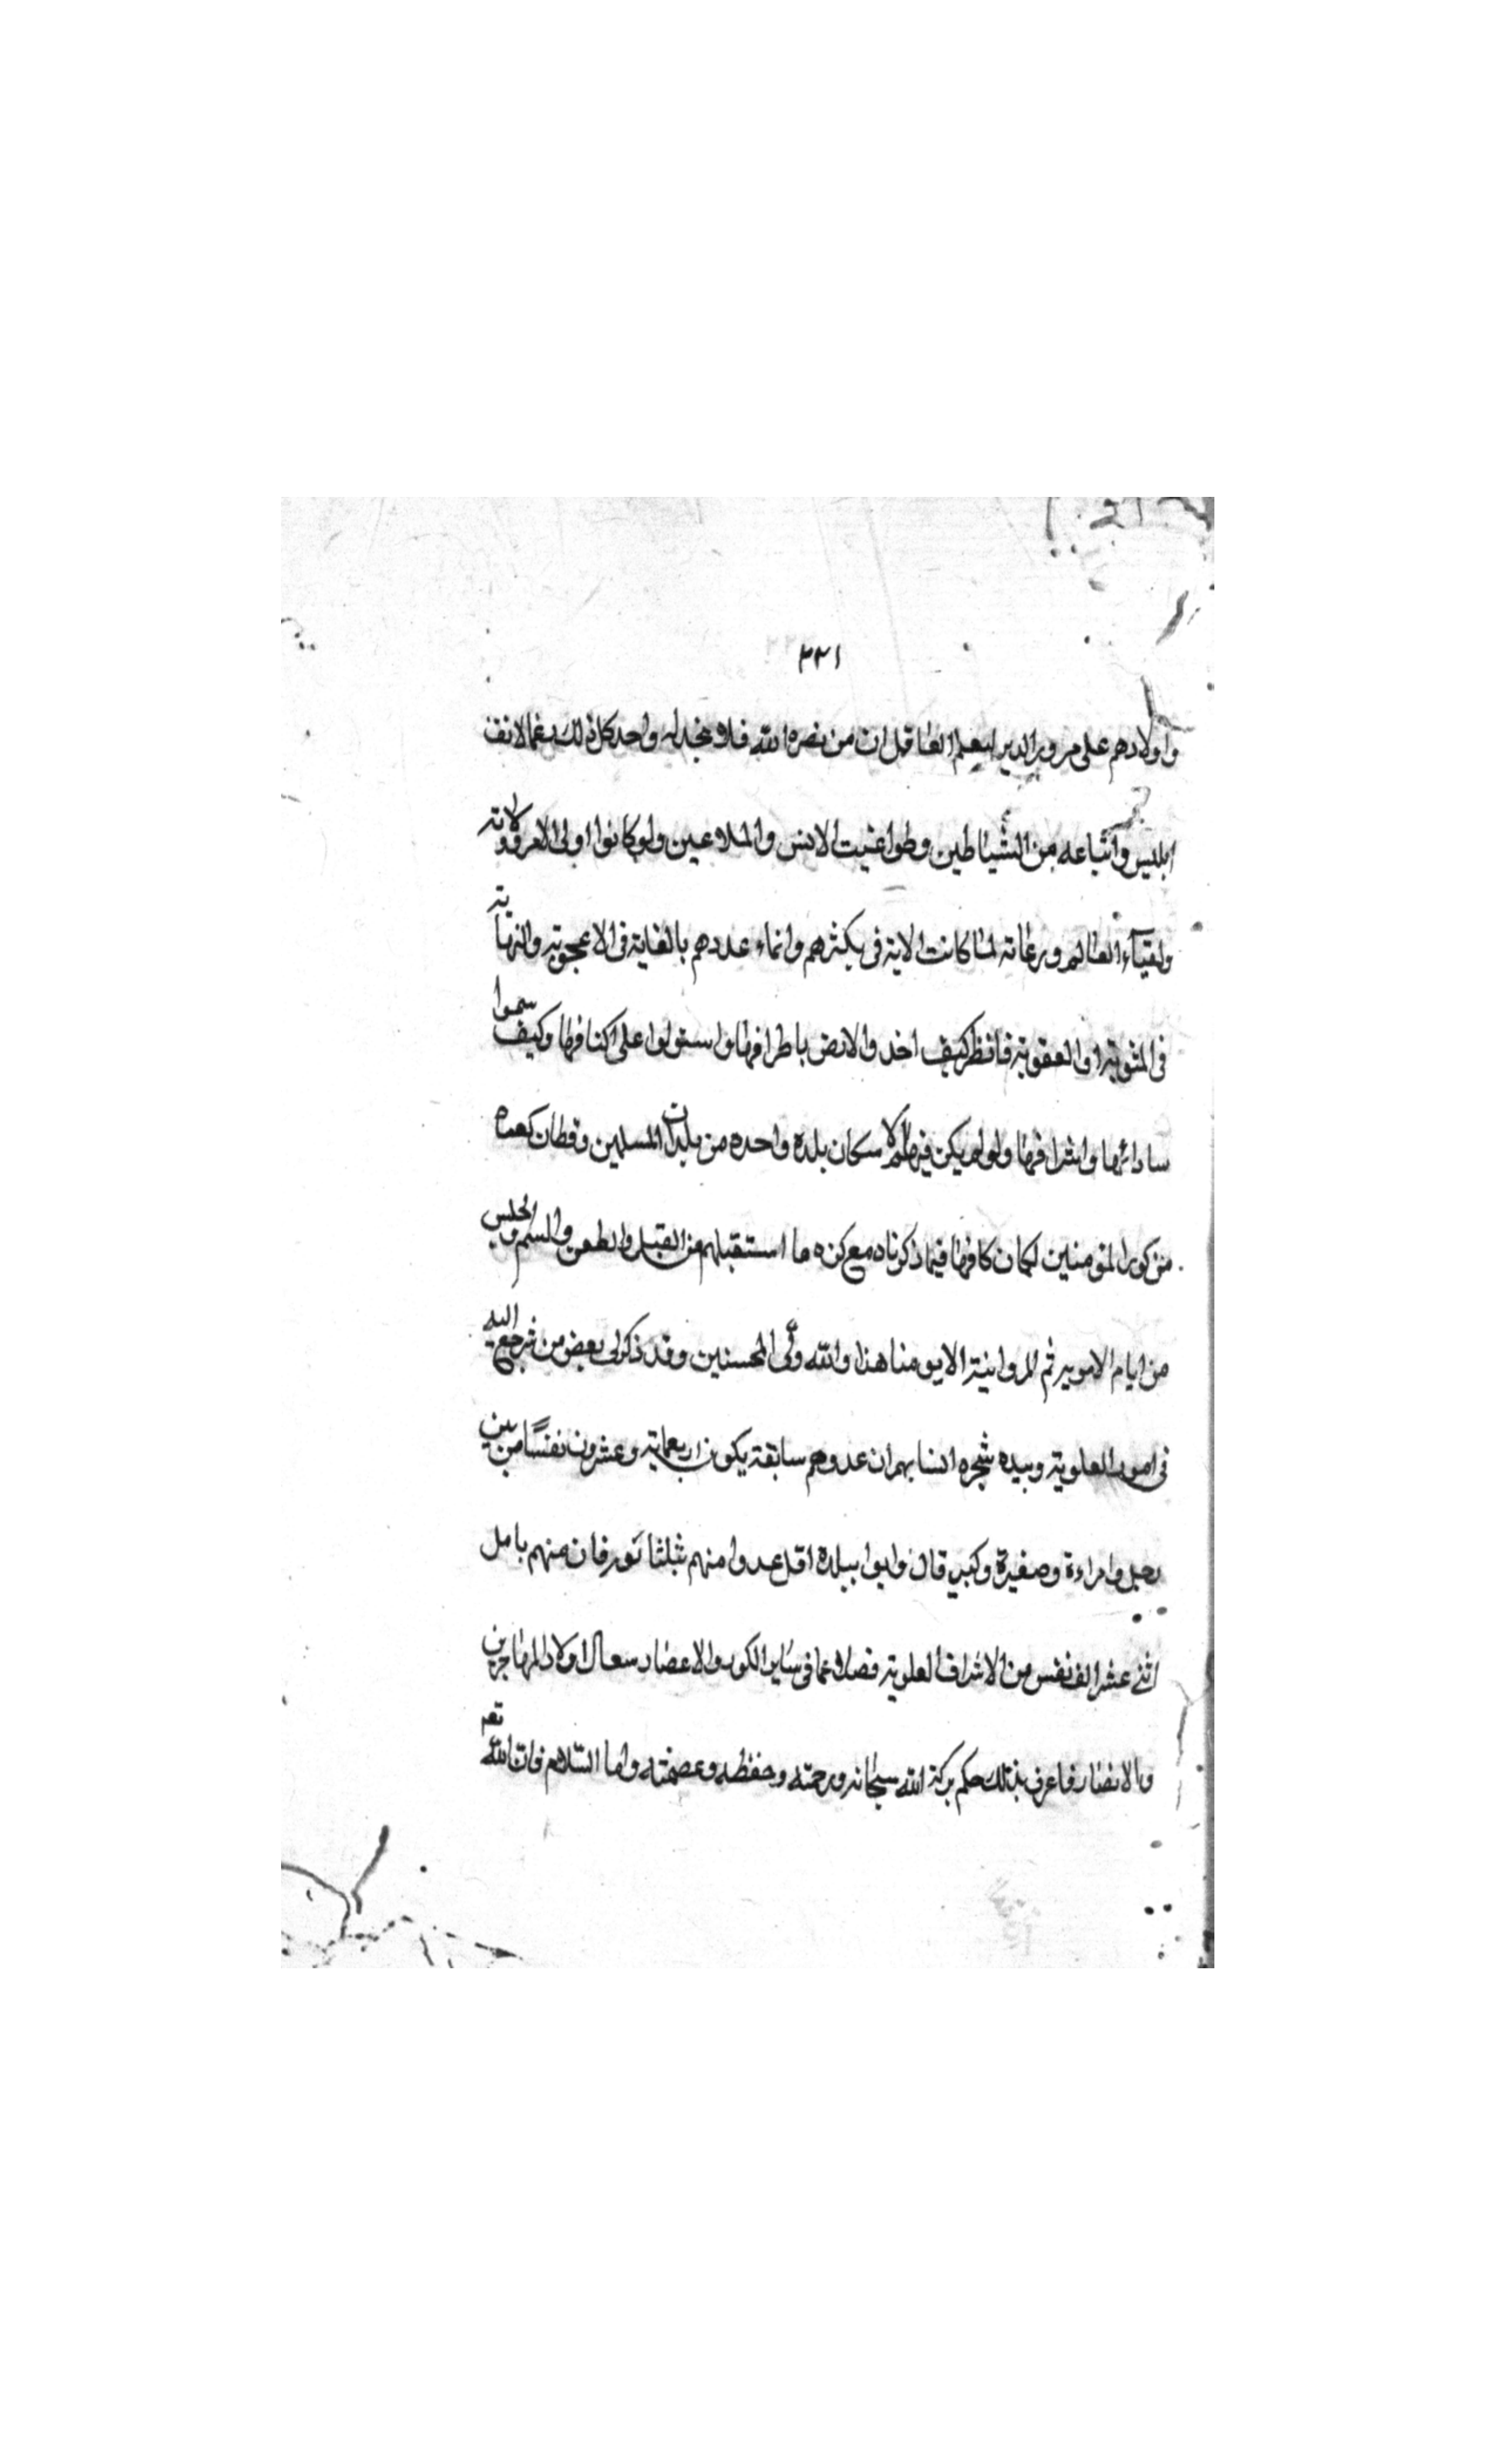 ٣٣١
واولادهم على مرور الدير ليعلم العاقل ان من نصره الله فلا يخذله واحد كل ذلك رغما لانف
ابليس واتباعه من الشياطين وطواغيت الانس والملاعين ولو كانوا اولى الامر وولاته
ولقياء العالم ورعاته لما كانت الاية فى يكثرهم وانماء عددهم بالغاية فى الاعجوبة والنهاية
فى المثوبة او العقوبة فانظر كيف اخد والارض باطرافها واستولوا على اكنافها وكيف سموا
ساداتها واشرافها ولو لم يكن فيها الا سكان بلدة واحده من بلدان المسلمين وقطان كعبه
من كور المؤمنين لكان كافيا فيما ذكرناه مع كثره ما استقبلهم من القتل والطعن والسم والحبس
من ايام الامويه ثم المروانية الا يومنا هذا والله ولى المحسنين وقد ذكر لى بعض من نرجع اليه
فى امور العلوية وبيده شجره انسابهم ان عدوهم سابقة يكون اربعماية وعشرون نفسًا من بين
رجل وامراءة وصغيرة وكبير قال وابوا ببلدة اقل عدوا منهم بثلثا نور فان منهم بامل
اثنى عشر الف نفس من الاشراف العلوية فضلا عما فى ساير الكور والاعصار سعال اولاد المهاجرين
والانصار فاعرف بذلك حكم بركة الله سبحانه ورحمته وحفظه وعصمته واما السلام فان الله تعم